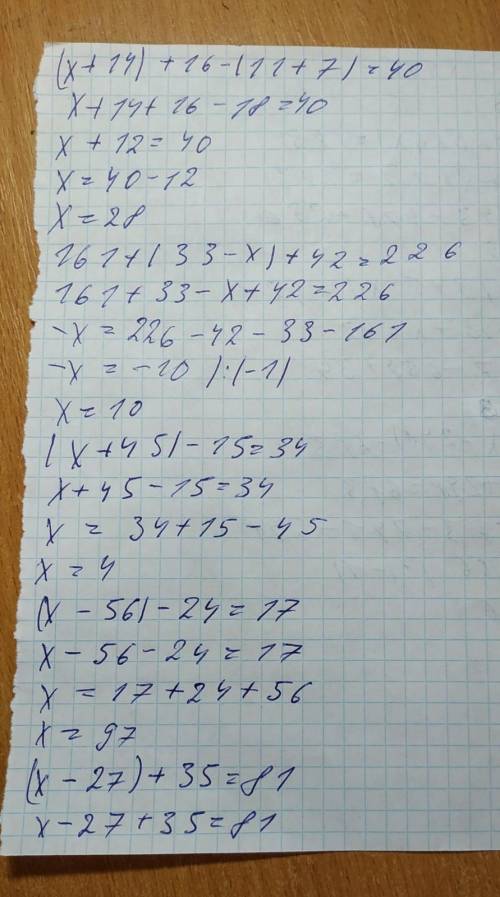 (x+14)+16-(11+7)=40
x+14+16-18=40
x+12=40
x=40-12
x=28
161+(33-x)+42=226
161+33-x+42=226
-x=226-42-33-161
-x=-10 ):(-1)
x=10
(x+45)-15=34
x+45-15=34
x=34+15-45
x=4
(x-56)-24=17
x-56-24=17
x=17+24+56
x=97
(x-27)+35=81
x-27+35=81